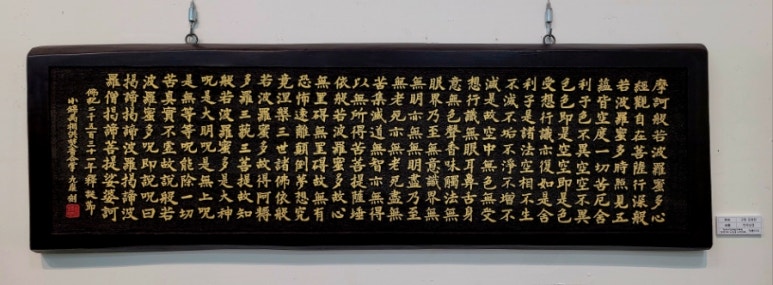 摩訶般若波羅蜜多心
經觀自在菩薩行深般
若波羅蜜多時照見五
蘊皆空度一切苦厄舍
利子色不異空空不異
色色即是空空即是色
受想行識亦復如是舍
利子是諸法空相不生
不滅不垢不淨不增不
減是故空中無色無受
想行識無眼耳鼻舌身
意無色聲香味觸法無
眼界乃至無意識界無
無明亦無無明盡乃至
無老死亦無老死盡無
苦集滅道無智亦無得
以無所得故菩提薩埵
依般若波羅蜜多故心
無罣碍無罣碍故無有
恐怖遠離顚倒夢想究
竟涅槃三世諸佛依般
若波羅蜜多故得阿耨
多羅三藐三菩提故知
般若波羅蜜多是大神
呪是大明呪是無上呪
是無等等呪能除一切
苦真實不虛故說般若
波羅蜜多呪即說呪曰
揭諦揭諦波羅揭諦波
羅僧揭諦菩提娑婆訶
佛紀二千五百三十一年釋誕節